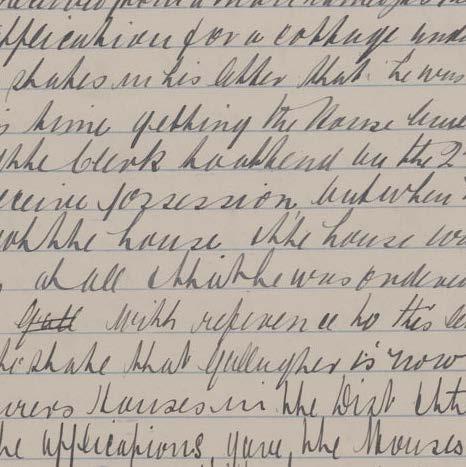 application for a cottage und
states in his letter that he was
time getting the House
the Clerk to attend on the 2
receive possession but when
the house & the house w
at all & that he was ordered
Gall with reference to this le
state that Gallagher is now
urers Houses in the Dist & th
he applications, gave, the Houses